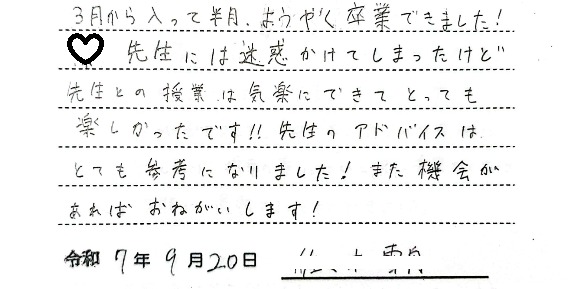 3月から入って半月、ようやく卒業できました!
♡ 先生には迷惑かけてしまったけど
先生との授業は気楽にできてとっても
楽しかったです!! 先生のアドバイスは
とても参考になりました! また機会が
あればおねがいします!
令和 7年 9月20日